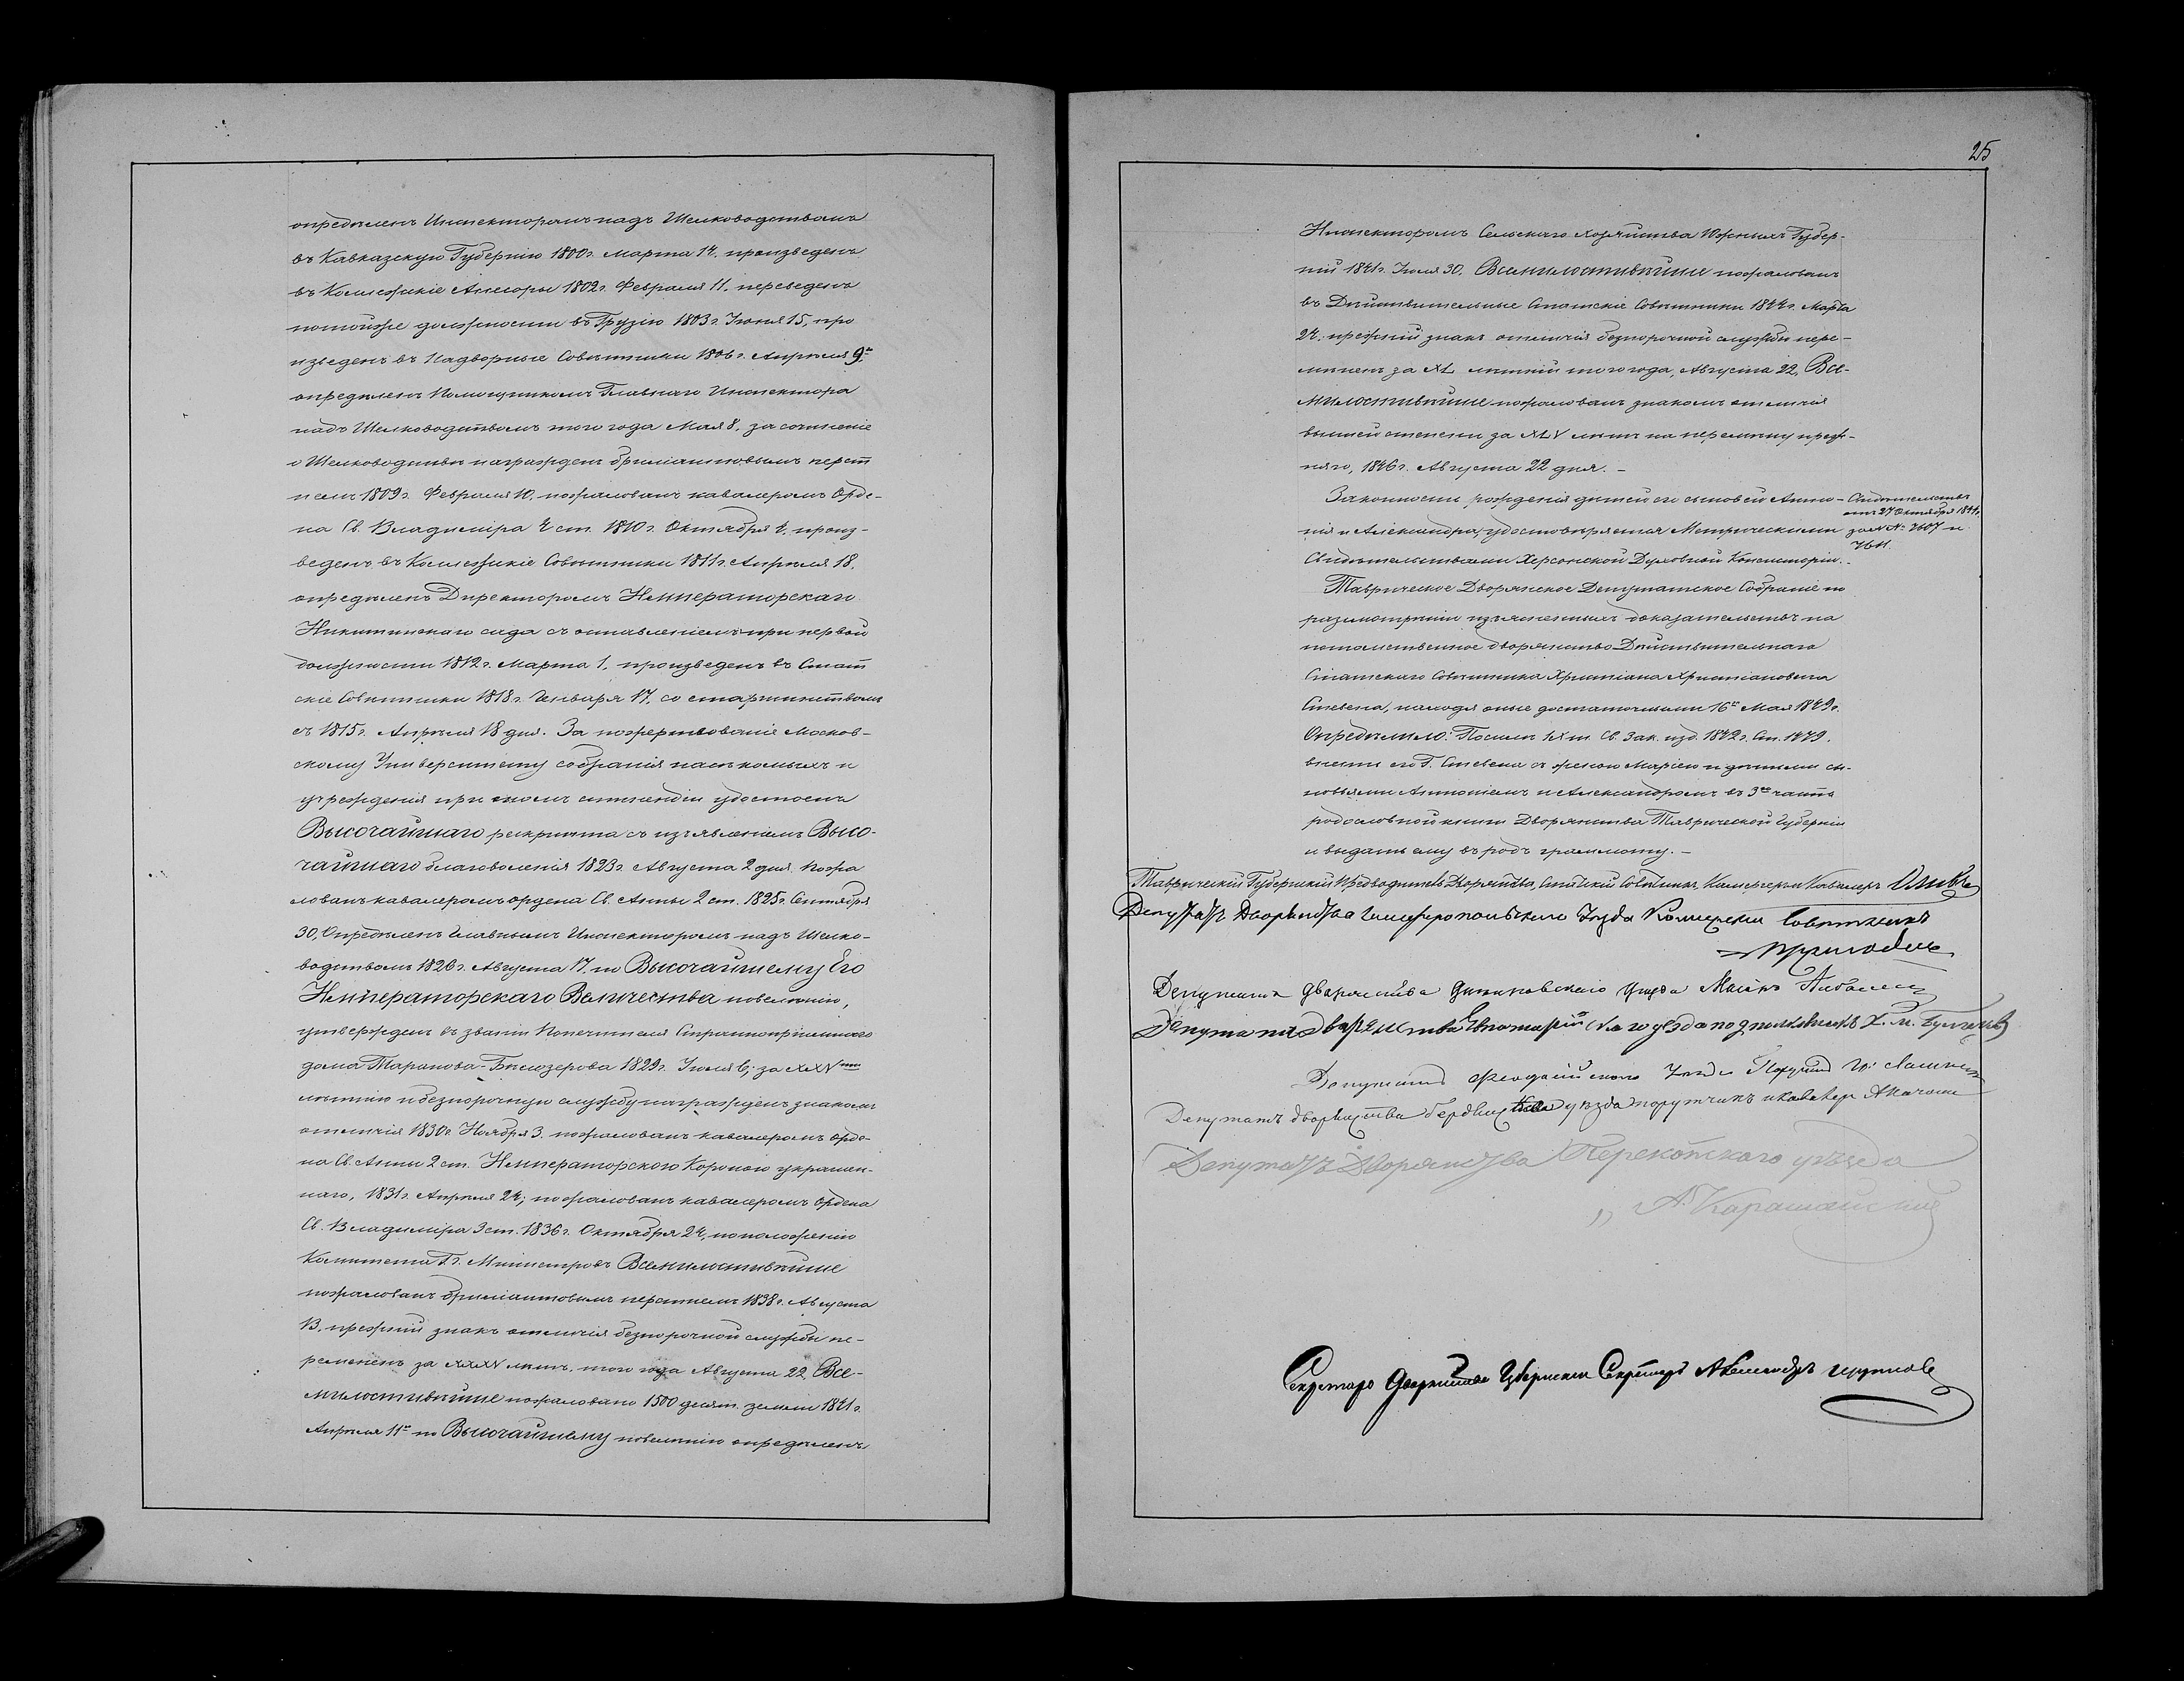 опредѣленъ Инспекторомъ надъ Шелководствомъ
въ Кавказскую Губернію 1800г. Марта 14. произведенъ
въ Колежскіе Ассесоры 1802г. Февраля 11. переведенъ
по той же должности въ Грузію 1803г. Іюня 15, про
изведенъ въ Надворные Совѣтники 1806г. Апрѣля 9го
опредѣленъ Помощникомъ Главнаго Инспектора
надъ Шелководствомъ того года Мая 8, за сочиненіе
о Шелководствѣ награжденъ брилiантовымъ перст
немъ 1809г. Февраля 10. пожалованъ кавалеромъ Орде-
на Св. Владиміра 4 ст. 1810г. Октября 4. произ-
веденъ въ Колежскіе Совѣтники 1811г. Апрѣля 18.
опредѣленъ Директоромъ Императорскаго
Никитинскаго сада съ оставленіемъ при первой
должности 1812г. Марта 1. произведенъ въ Стат
скіе Совѣтники 1818г. Генваря 17, со старшинствомъ
съ 1815г. Апрѣля 18 дня. За пожертвованіе Москов-
скому Университету собранія насѣкомыхъ и
учрежденія при томъ стипендіи удостоенъ
Высочайшаго рескрипта съ изъявленіемъ Высо-
чайшаго благоволенія 1823г. Августа 2 дня. Пожа
лованъ кавалеромъ ордена Св. Анны 2 ст. 1825г. Сентября
30, Опредѣленъ Главнымъ Инспекторомъ надъ Шелко-
водствомъ 1826г. Августа 17. по Высочайшему Его
Императорскаго Величества повелѣнію,
утвержденъ въ званіи Попечителя Страннопріимнаго
дома Таранова-Бѣлозерова 1829г. Іюля 6; за XXV
лѣтнюю и безпорочную службу награжденъ знакомъ
отличія 1830г. Ноября 3. пожалованъ кавалеромъ орде-
на Св. Анны 2 ст. Императорскою Короною украшен-
наго, 1831г. Апрѣля 24; пожалованъ кавалеромъ Ордена
Св. Владиміра 3 ст. 1836г. Октября 24, по положенію
Комитета Гг. Министровъ Всемилостивѣйше
пожалованъ бриліантовымъ перстнемъ 1838г. Августа
13, прежній знакъ отличія безпорочной службы пе-
ремененъ за XXXV лѣтъ. того года Августа 22 Все-
милостивѣйше пожаловано 1500 десят. земли 1841г.
Апрѣля 11го по Высочайшему повелѣнію опредѣленъ
25
Инспекторомъ Сельскаго хозяйства Южныхъ Губер-
ній 1841г. Іюля 30. Всемилостивѣйше пожалованъ
въ Дѣйствительные Статскіе Совѣтники 1844г. Марта
24; прежній знакъ отличія безпорочной службы пере-
мененъ за XL лѣтній того года, Августа 22, Все-
милостивѣйше пожалованъ знакомъ отличія
высшей степени за XLV лѣтъ на перемѣну преж-
няго, 1846г. Августа 22 дня. –
Законность рожденія дѣтей его сыновей Анто-
нія и Александра, удостовѣряется Метрическими
Свидѣтельствами Херсонской Духовной Консисторіи.
Свидѣтельства
отъ 27 Октября 1844г.
за №№ 7607 и
7611.
Таврическое Дворянское Депутатское Собраніе по
разсмотрѣніи изъясненныхъ доказательствъ на
потомственное дворянство Дѣйствительнаго
Статскаго Совѣтника Христіана Христіановича
Стевена, находя оные достаточными 16го Мая 1849г.
Опредѣлило: По силѣ IX т. Св. Зак. изд. 1842г. Ст. 1479.
внести его Г. Стевена съ женою Маріею и дѣтьми сы-
новьями Антоніемъ и Александромъ въ 3ю часть
родословной книги Дворянства Таврической Губерніи
и выдать ему въ родъ граммоту. –
Таврическій Губернскій Предводитель Дворянства, Статскій Совѣтникъ, Камергеръ и Кавалеръ
Депутатъ Дворянства Симферопольскаго Уезда Колежскій Совѣтникъ
Депутатъ дворянства Днѣпровскаго Уезда
Депутатъ Дворянства Евпаторійскаго уезда подполковникъ
Депутатъ Феодосійскаго Уезда
Депутатъ дворянства Бердянскаго уезда порутчикъ и кавалеръ
Депутатъ Дворянства Перекопскаго уѣзда
Секретарь Дворянства Губернскій Секретарь